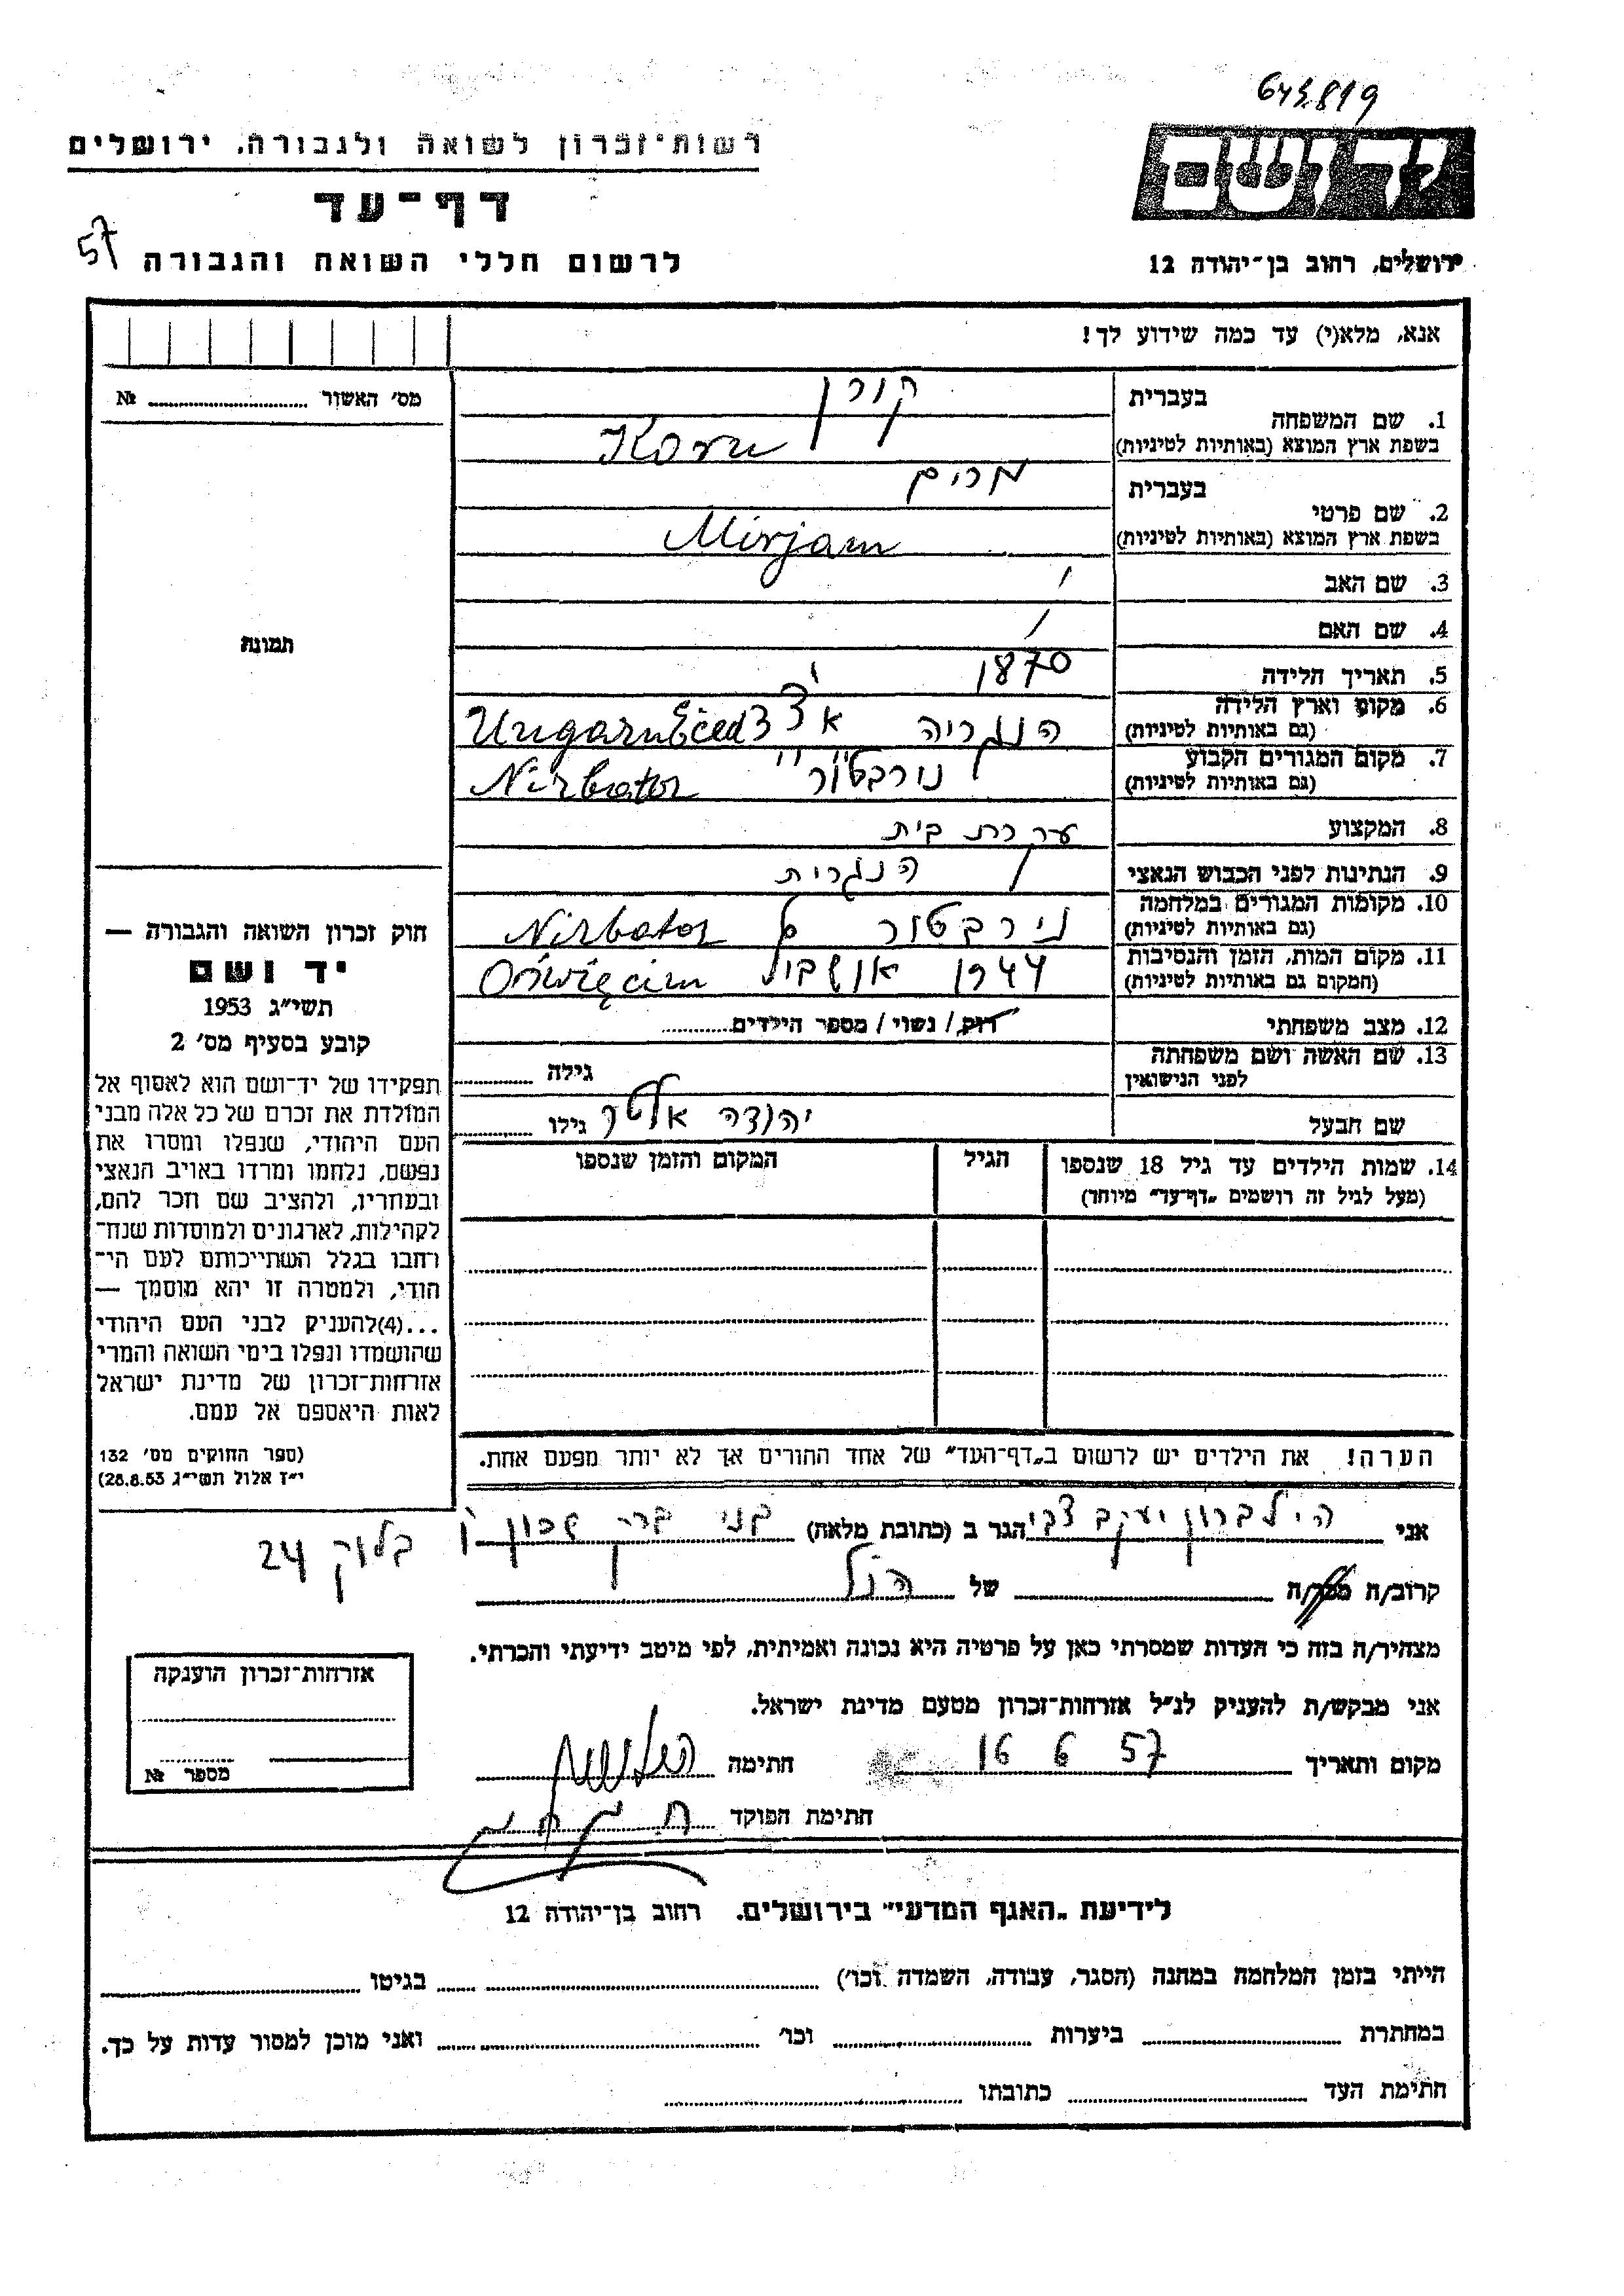 643819
רשות-זכרון לשואה ולגבורה, ירושלים
יד ושם
דף-עד
57
לרשום חללי השואה והגבורה
ירושלים, רחוב בן-יהודה 12
אנא, מלא(י) עד כמה שידוע לך!
מס׳ האשור ........ №
תמונה
1. שם המשפחה
בעברית קורן
בשפת ארץ המוצא (באותיות לטיניות) Korn
2. שם פרטי
בעברית מרים
בשפת ארץ המוצא (באותיות לטיניות) Mirjam
3. שם האב /
4. שם האם /
5. תאריך הלידה 1870
6. מקום וארץ הלידה
(גם באותיות לטיניות) הונגריה
7. מקום המגורים הקבוע
(גם באותיות לטיניות) נירבטור Nirbator
8. המקצוע עקרת בית
9. הנתינות לפני הכבוש הנאצי הונגרית
10. מקומות המגורים במלחמה
(גם באותיות לטיניות) נירבטור Nirbator
11. מקום המות, הזמן והנסיבות
(המקום גם באותיות לטיניות) 1944 Oświęcim
12. מצב משפחתי רוק/ נשוי / מספר הילדים........
13. שם האשה ושם משפחתה
לפני הנישואין גילה ........
שם הבעל יהודה אלטר גילו ........
14. שמות הילדים עד גיל 18 שנספו
(מעל לגיל זה רושמים „דף-עד״ מיוחד)
הגיל
המקום והזמן שנספו
הערה! את הילדים יש לרשום ב„דף-העד״ של אחד ההורים אך לא יותר מפעם אחת.
חוק זכרון השואה והגבורה —
יד ושם
תשי״ג 1953
קובע בסעיף מס׳ 2
תפקידו של יד-ושם הוא לאסוף אל
המולדת את זכרם של כל אלה מבני
העם היהודי, שנפלו ומסרו את
נפשם, נלחמו ומרדו באויב הנאצי
ובעוזריו, ולהציב שם וזכר להם,
לקהילות, לארגונים ולמוסדות שנח-
רבו בגלל השתייכותם לעם הי-
הודי, ולמטרה זו יהא מוסמך —
...(4)להעניק לבני העם היהודי
שהושמדו ונפלו בימי השואה והמרי
אזרחות-זכרון של מדינת ישראל
לאות היאספם אל עמם.
(ספר החוקים מס׳ 132
י״ז אלול תשי״ג 28.8.53)
אני הילברון יעקב צבי הגר ב (כתובת מלאה) בני ברק שכון ו׳ בלוק 24
קרוב/ה מכר/ה ........ של הנ״ל
מצהיר/ה בזה כי העדות שמסרתי כאן על פרטיה היא נכונה ואמיתית, לפי מיטב ידיעתי והכרתי.
אני מבקש/ת להעניק לנ״ל אזרחות-זכרון מטעם מדינת ישראל.
מקום ותאריך 16 6 57 חתימה
חתימת הפוקד
אזרחות-זכרון הוענקה
מספר №
לידיעת „האגף המדעי״ בירושלים. רחוב בן-יהודה 12
הייתי בזמן המלחמה במחנה (הסגר, עבודה, השמדה וכו׳) ........ בגיטו ........
במחתרת ........ ביערות ........ וכו׳ ........ ואני מוכן למסור עדות על כך.
חתימת העד ........ כתובתו ........